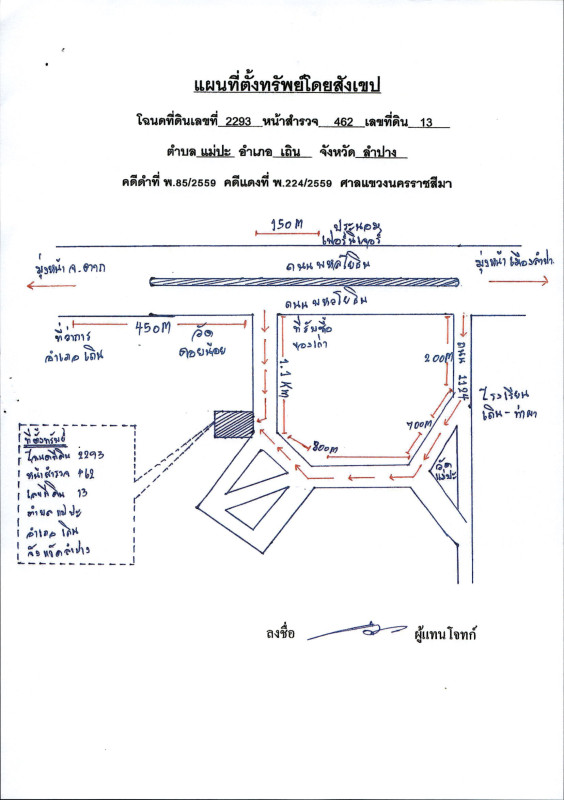 แผนที่ตั้งทรัพย์โดยสังเขป
โฉนดที่ดินเลขที่ 2293 หน้าสำรวจ 462 เลขที่ดิน 13
ตำบล แม่ปะ อำเภอ เถิน จังหวัด ลำปาง
คดีดำที่ พ.85/2559 คดีแดงที่ พ.224/2559 ศาลแขวงนครราชสีมา
150 M
ประนอม
เฟอร์นิเจอร์
มุ่งหน้า จ.ตาก
ถนน พหลโยธิน
มุ่งหน้า เมืองลำปาง
ถนน พหลโยธิน
450 M
ที่ว่าการ
อำเภอ เถิน
วัด
ดอยน้อย
ที่รับซื้อ
ของเก่า
1.1 Km
200 M
ถนน 1124
โรงเรียน
เถิน - ท่าผา
700 M
800 m
วัด
แม่ปะ
ที่ตั้งทรัพย์
โฉนดที่ดิน 2293
หน้าสำรวจ 462
เลขที่ดิน 13
ตำบล แม่ปะ
อำเภอ เถิน
จังหวัด ลำปาง
ลงชื่อ ผู้แทนโจทก์